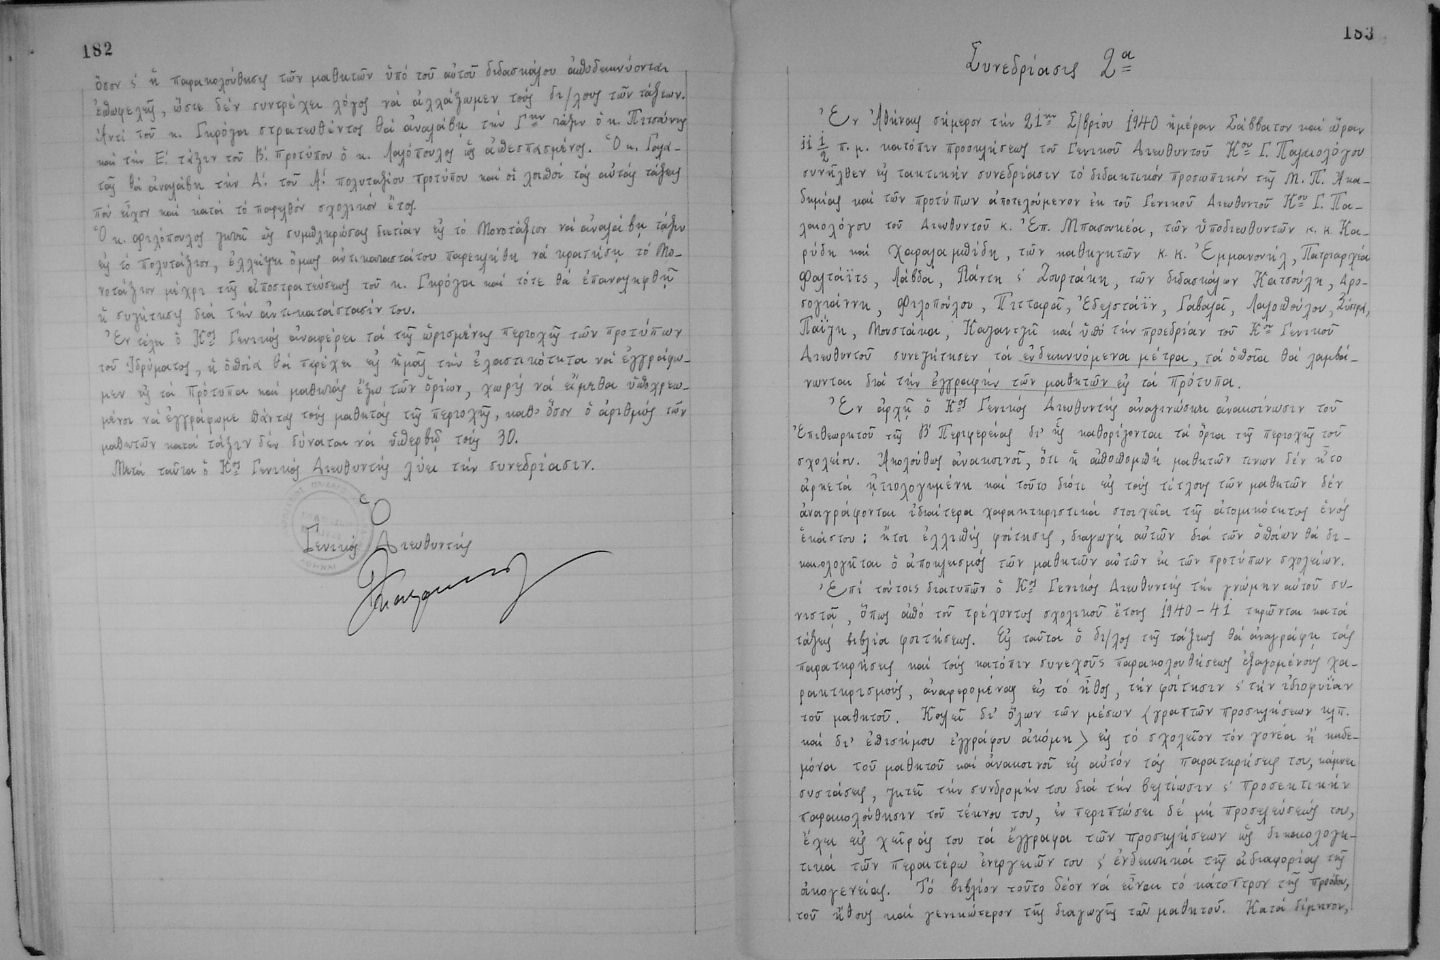 182
ὅσον ϛ ἡ παρακολούθησις τῶν μαθητῶν ὑπό τοῦ αὐτοῦ διδασκάλου ἀποδεικνύονται
ἐπωφελῆς, ὥστε δέν συντρέχει λόγος νά ἀλλάξωμεν τούς δι/λους τῶν τάξεων.
Ἀντί τοῦ κ. Γκρόζου στρατευθέντος θά ἀναλάβῃ τήν Γην τάξιν ὁ κ. Πιτσάνης
καί τήν Ε΄ τάξιν τοῦ Β΄ προτύπου ὁ κ. Λαγόπουλος ὡς ἀπεσπασμένος. Ὁ κ. Γαβα-
τᾶς θά ἀναλάβῃ τήν Α΄. τοῦ Α΄. πολυταξίου προτύπου καί οἱ λοιποί τάς αὐτάς τάξεις
πού εἶχον καί κατά τό παρελθόν σχολικόν ἔτος.
Ὁ κ. Φιλόπουλος ζητεῖ ὡς συμπληρώσας διετίαν εἰς τό Μονοτάξιον νά ἀναλάβῃ τάξιν
εἰς τό πολυτάξιον, ἐλλείψει ὅμως ἀντικαταστάτου παρεκλήθη νά κρατήσῃ τό Μο-
νοτάξιον μέχρι τῆς ἀποστρατεύσεως τοῦ κ. Γκρόζου καί τότε θά ἐπαναληφθῇ
ἡ συζήτησις διά τήν ἀντικατάστασίν του.
Ἐν τέλει ὁ Κος Γενικός ἀναφέρει τά τῆς ὡρισμένης περιοχῆς τῶν προτύπων
τοῦ Ἱδρύματος, ἡ ὁποία θά παρέχει εἰς ἡμᾶς τήν ἐλαστικότητα νά ἐγγράφω-
μεν εἰς τά Πρότυπα καί μαθητάς ἔξω τῶν ὁρίων, χωρίς νά εἴμεθα ὑποχρεω-
μένοι νά ἐγγράφωμε πάντας τούς μαθητάς τῆς περιοχῆς, καθ' ὅσον ὁ ἀριθμός τῶν
μαθητῶν κατά τάξιν δέν δύναται νά ὑπερβῇ τούς 30.
Μετά ταῦτα ὁ Κος Γενικός Διευθυντής λύει τήν συνεδρίασιν.
Ὁ
Γενικός Διευθυντής
183
Συνεδρίασις 2α
Ἐν Ἀθήναις σήμερον τήν 21ην Σ/βρίου 1940 ἡμέραν Σάββατον καί ὥραν
11 1/2 π. μ. κατόπιν προσκλήσεως τοῦ Γενικοῦ Διευθυντοῦ Κου Γ. Παλαιολόγου
συνῆλθεν εἰς τακτικήν συνεδρίασιν τό διδακτικόν προσωπικόν τῆς Μ. Π. Ἀκα-
δημίας καί τῶν προτύπων ἀποτελούμενον ἐκ τοῦ Γενικοῦ Διευθυντοῦ Κου Γ. Πα-
λαιολόγου τοῦ Διευθυντοῦ κ. Ἐπ. Μπασουκέα, τῶν ὑποδιευθυντῶν κ. κ. Κα-
ρύδη καί Χαραλαμπίδη, τῶν καθηγητῶν κ. κ. Ἐμμανουήλ, Πατριαρχέα
Φαλτάϊτς, Λάββα, Πάντη ϛ Ζουρτάκη, τῶν διδασκάλων Κατσούλη, Δρο-
σογιάννη, Φιλοπούλου, Πιτταρᾶ, Ἐδελστάϊν, Γαβαλᾶ, Λαγοπούλου, Ζύπρα,
Παΐζη, Μουστάκα, Καλαντζῆ καί ὑπό τήν προεδρίαν τοῦ Κου Γενικοῦ
Διευθυντοῦ συνεζήτησεν τά ἐνδεικνυόμενα μέτρα, τά ὁποῖα θά λαμβά-
νωνται διά τήν ἐγγραφήν τῶν μαθητῶν εἰς τά Πρότυπα.
Ἐν ἀρχῇ ὁ Κος Γενικός Διευθυντής ἀναγινώσκει ἀνακοίνωσιν τοῦ
Ἐπιθεωρητοῦ τῆς Β΄ Περιφερείας δι' ἧς καθορίζονται τά ὅρια τῆς περιοχῆς τοῦ
σχολείου. Ἀκολούθως ἀνακοινοῖ, ὅτι ἡ ἀποπομπή μαθητῶν τινων δέν ἦτο
ἀρκετά ᾐτιολογημένη καί τοῦτο διότι εἰς τούς τίτλους τῶν μαθητῶν δέν
ἀναγράφονται ἰδιαίτερα χαρακτηριστικά στοιχεῖα τῆς ἀτομικότητος ἑνός
ἑκάστου: ἤτοι ἐλλιπής φοίτησις, διαγωγή αὐτῶν διά τῶν ὁποίων θά δι-
καιολογῆται ὁ ἀποκλεισμός τῶν μαθητῶν αὐτῶν ἐκ τῶν προτύπων σχολείων.
Ἐπί τούτοις διατυπῶν ὁ Κος Γενικός Διευθυντής τήν γνώμην αὐτοῦ συ-
νιστᾶ, ὅπως ἀπό τοῦ τρέχοντος σχολικοῦ ἔτους 1940-41 τηρῶνται κατά
τάξεις βιβλία φοιτήσεως. Εἰς ταῦτα ὁ δι/λος τῆς τάξεως θά ἀναγράφῃ τάς
παρατηρήσεις καί τούς κατόπιν συνεχοῦς παρακολουθήσεως ἐξαγομένους χα-
ρακτηρισμούς, ἀναφερομένας εἰς τό ἦθος, τήν φοίτησιν ϛ τήν ἰδιοφυΐαν
τοῦ μαθητοῦ. Καλεῖ δι' ὅλων τῶν μέσων (γραπτῶν προσκλήσεων κλπ.
καί δι' ἐπισήμου ἐγγράφου ἀκόμη) εἰς τό σχολεῖον τόν γονέα ἤ κηδε-
μόνα τοῦ μαθητοῦ καί ἀνακοινοῖ εἰς αὐτόν τάς παρατηρήσεις του, κάμνει
συστάσεις, ζητεῖ τήν συνδρομήν του διά τήν βελτίωσιν ϛ προσεκτικήν
παρακολούθησιν τοῦ τέκνου του, ἐν περιπτώσει δέ μή προσελεύσεώς του,
ἔχει εἰς χεῖράς του τά ἔγγραφα τῶν προσκλήσεων ὡς δικαιολογη-
τικά τῶν περαιτέρω ἐνεργειῶν του ϛ ἐνδεικτικά τῆς ἀδιαφορίας τῆς
οἰκογενείας. Τό βιβλίον τοῦτο δέον νά εἶναι τό κάτοπτρον τῆς προόδου,
τοῦ ἤθους καί γενικώτερον τῆς διαγωγῆς τοῦ μαθητοῦ. Κατά δίμηνον,